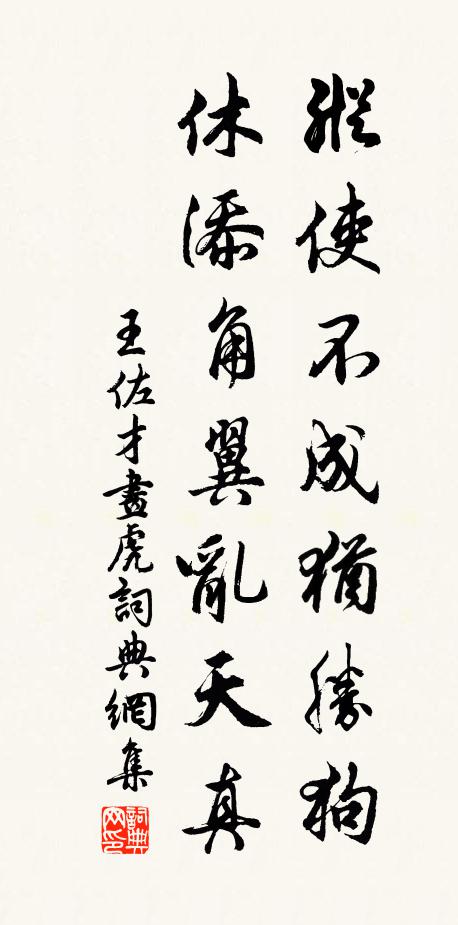 縱使不成猶勝狗
休添角翼亂天真
王佐才畫虎詞典網集
詞典网印